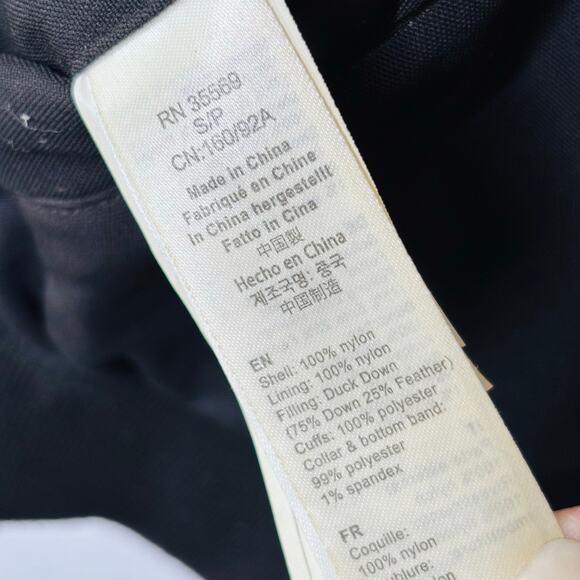 RN 35569
S/P
CN:160/92A
Made in China
Fabriqué en Chine
In China hergestellt
Fatto in Cina
中国製
Hecho en China
제조국명: 중국
中国制造
EN
Shell: 100% nylon
Lining: 100% nylon
Filling: Duck Down
(75% Down 25% Feather)
Cuffs: 100% polyester
Collar & bottom band:
99% polyester
1% spandex
FR
Coquille:
100% nylon